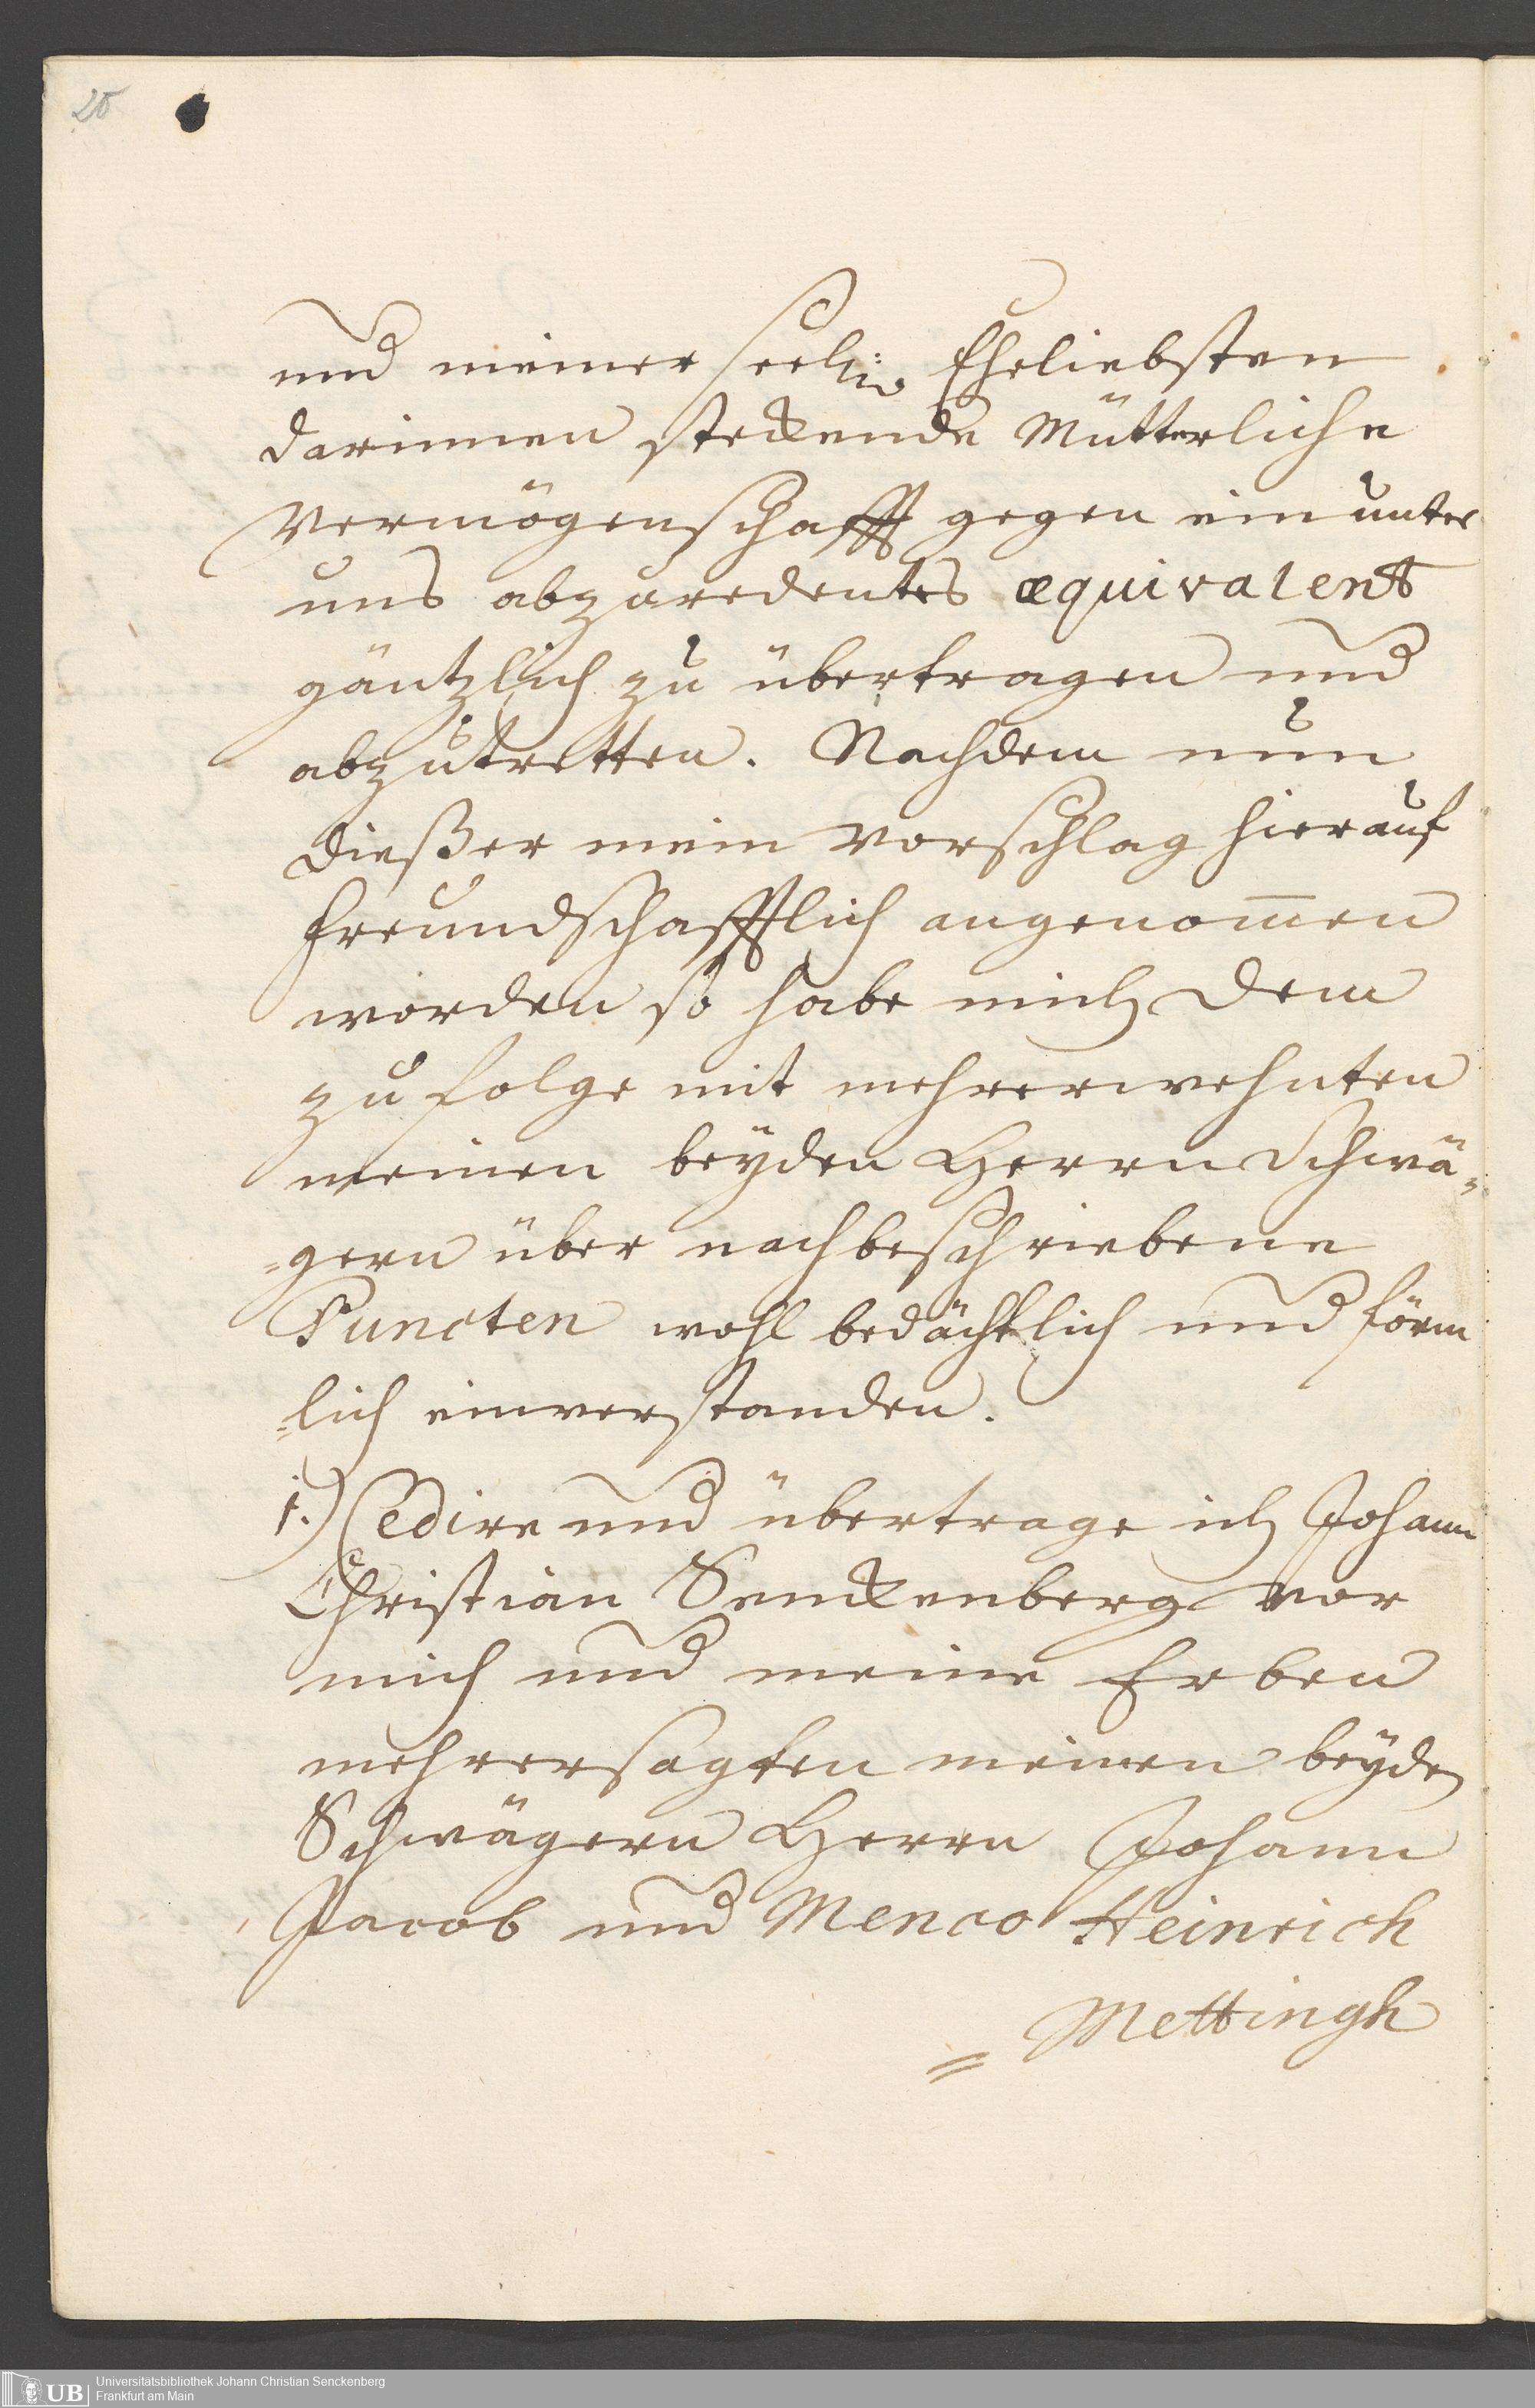 25
und meiner seel: Eheliebsten
darinnen stekende Mütterliche
Vermögenschafft gegen ein unter
uns abzuredentes æquivalent
gäntzlich zu übertragen und
abzutretten. Nachdem nun
dießer mein Vorschlag hierauf
freundschafftlich angenom̄en
worden so habe mich dem
zu folge mit mehrerwehnten
meinen beyden Herrn Schwä-
-gern über nachbeschriebene
Puncten wohl bedächtlich und förm
-lich einverstanden.
1.) Cedire und übertrage ich Johann
Christian Senckenberg vor
mich und meine Erben
mehrersagten meinen beyden
Schwägern Herrn Johann
Jacob und Menco Heinrich
= Mettingh
UB
Universitätsbibliothek Johann Christian Senckenberg
Frankfurt am Main